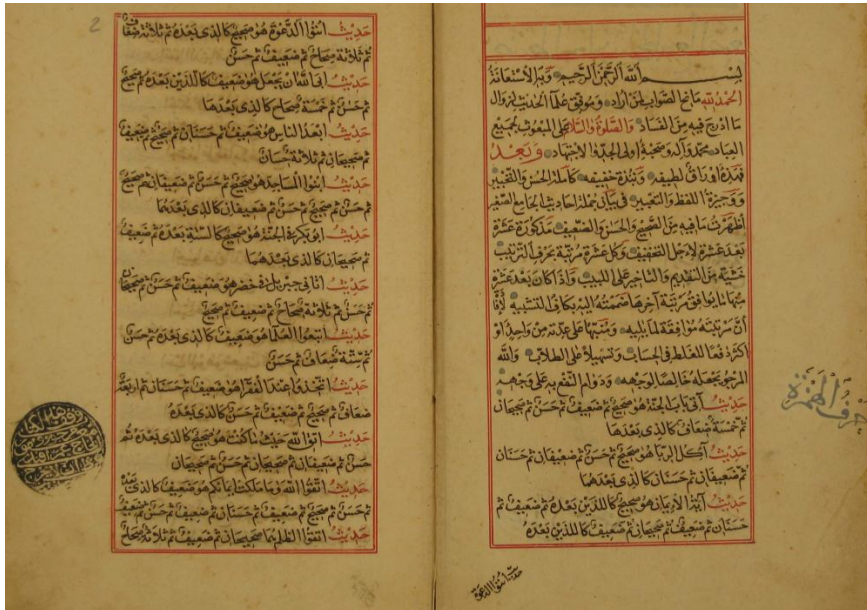 بسم الله الرحمن الرحيم وبه الاستعانة
الحمد لله مانح الصواب لمن أراد وموفق علماء الحديث لزوال
ما ادرج فيه من الفساد والصلوة والسلام على المبعوث لجميع
العباد محمد وآله وصحبه اولى الجد والاجتهاد وبعد
فهذه اوراق لطيفه ونبذة خفيفه كاملة الحسن والتحبير
ووجيزة اللفظ والتعبير في بيان جملة احاديث الجامع الصغير
أظهرت ما فيه من الصحيح والحسن والضعيف مذكورة عشرة
بعد عشرة لاجل التخفيف وكل عشرة مرتبة بحرف الترتيب
خشية من التقديم والتاخير على اللبيب واذا كان بعد عشرة
منها ما يوافق مرتبة آخرها ضممته اليه بكاف التشبيه
أن مرتبته موافقة لما يليه ونبهتها على عدته من واحد او
اكثر دفعا للغلط في الحساب وتسهيلا على الطلاب والله
المرجو بجعله خالصا لوجهه ودوام النفع به على وجهه
حديث آتى باب الجنة هو صحيح ثم حسن ثم صحيحان
ثم خمسة ضعاف كالذى بعدها
حديث آكل الربا هو صحيح ثم حسن ثم ضعيفان ثم حسنان
ثم ضعيفان ثم حسنان كالذى بعدهما
حديث هو صحيح كاللذين بعده ثم ضعيف ثم
حسنان ثم ضعيف ثم صحيحان ثم ضعيف كاللذين بعده
حديث ائتوا الدعوة
حرف الهمزة
2
حديث ائتوا الدعوة هو صحيح كالذى بعده ثم ثلاثة ضعاف
ثم ثلاثة صحاح ثم ضعيف ثم حسن
حديث ابى الله ان يجعل هو ضعيف كاللذين بعده ثم صحيح
ثم حسن ثم خمسة صحاح كالذى بعدها
حديث ابغد الناس هو ضعيف ثم حسنان ثم صحيح ثم ضعيف
ثم صحيحان ثم ثلاثة حسان
حديث ابنوا المساجد هو صحيح ثم حسن ثم ضعيفان ثم صحيح
ثم حسن ثم صحيح ثم حسن ثم ضعيفان كالذى بعدهما
حديث ابو بكر في الجنة هو صحيح كالستة بعده ثم ضعيف
ثم صحيحان كالذى بعدهما
حديث اتانى جبريل في خضر هو ضعيف ثم حسن ثم صحيحان
ثم حسن ثم ثلاثة صحاح ثم ضعيف ثم صحيح
حديث اتبعوا العلماء هو ضعيف كالذى بعده ثم حسن
ثم ستة ضعاف ثم حسن
حديث اتخذوا عند الفقراء هو ضعيف ثم حسنان ثم اربعة
ضعاف ثم صحيح ثم ضعيف ثم حسن كالذى بعده
حديث اتق الله حيث ما كنت هو صحيح كالذى بعده ثم
حسن ثم ضعيفان ثم صحيحان ثم حسن ثم صحيحان
حديث اتقوا الله وما ملكت ايمانكم هو ضعيف كالذى بعده
ثم حسن ثم صحيح ثم ضعيف ثم حسنان ثم ضعيف ثم حسن ثم ضعيف
حديث اتقوا الظلم هما صحيحان ثم ضعيف ثم ثلاثة صحاح